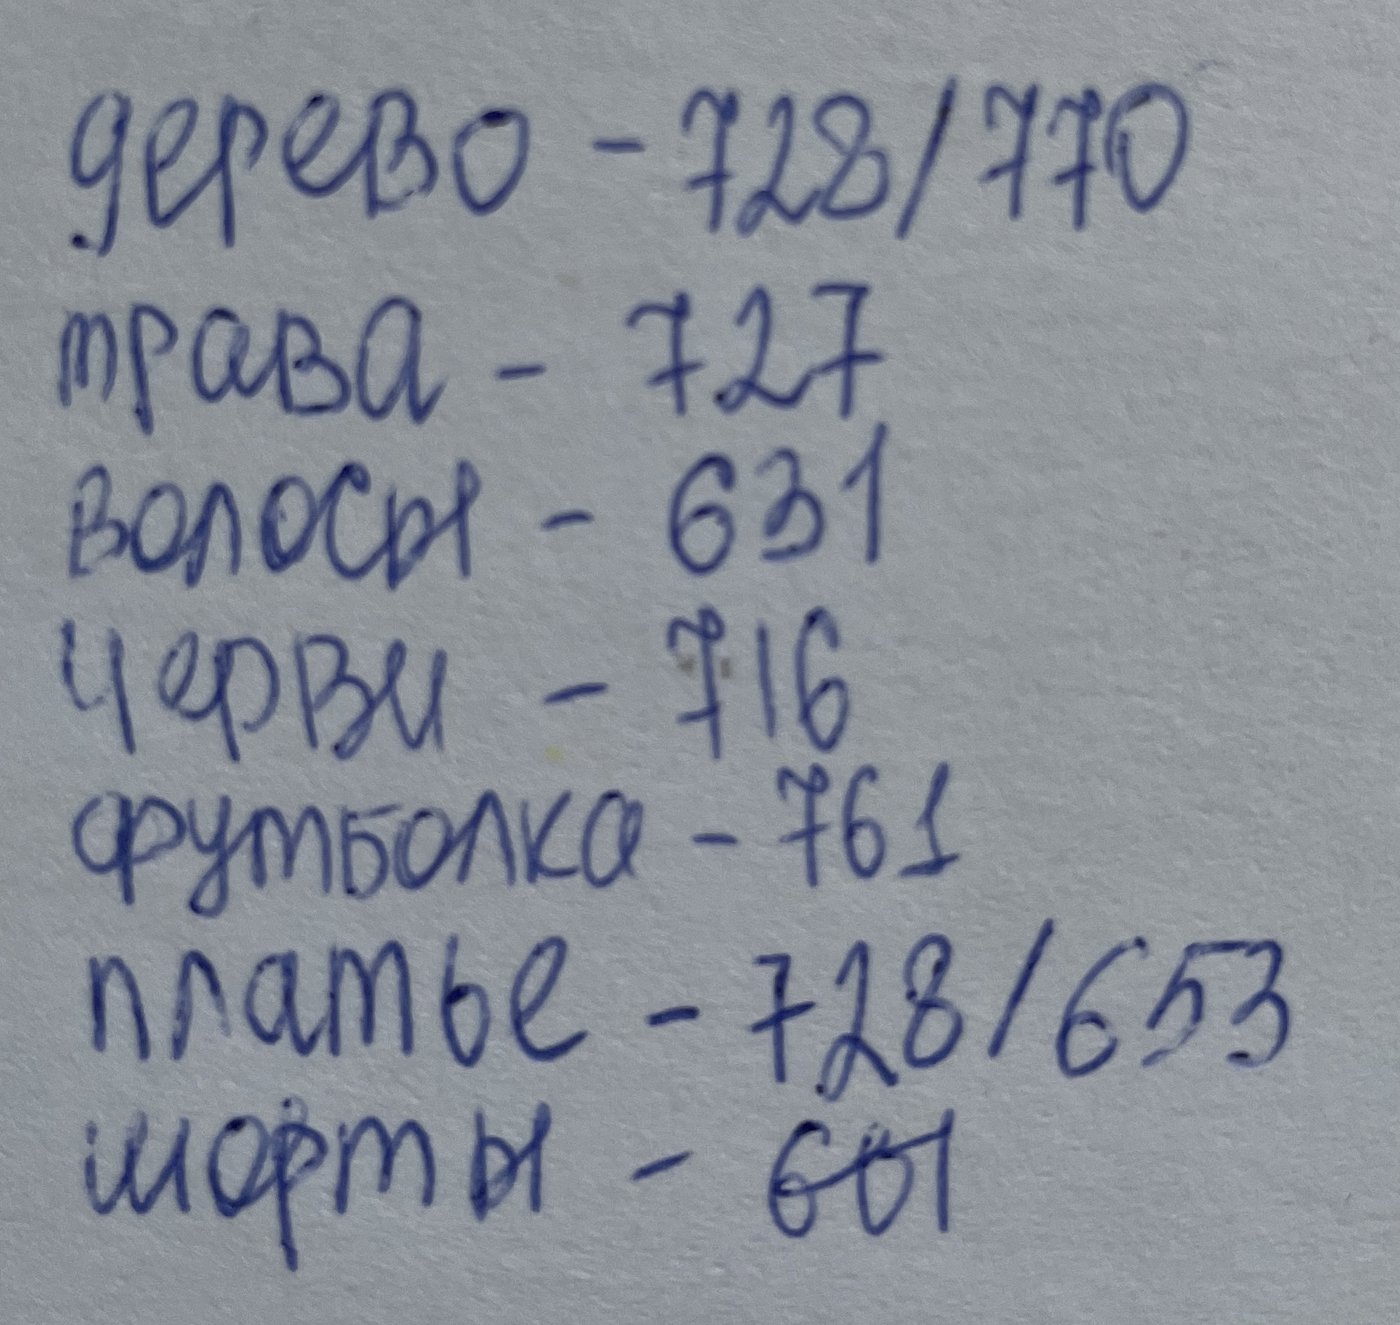 дерево - 728/770
трава - 727
волосы - 631
черви - 716
футболка - 761
платье - 728/653
шорты - 601